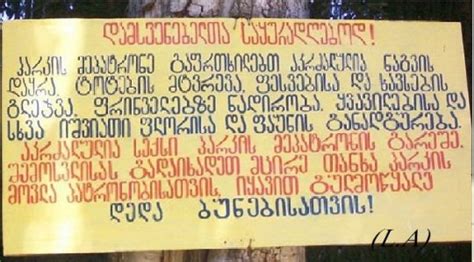 დამსვენებელთა საყურადღებოდ!
პარკის მეპატრონე გაფრთხილებთ აკრძალულია ნაგვის
დაყრა, ტოტების მტვრევა, ფესვებისა და ხავსების
გლეჯვა, ფრინველებზე ნადირობა, ყვავილებისა და
სხვა იშვიათი ფლორისა და ფაუნის განადგურება.
აკრძალულია სექსი პარკის მეპატრონის გარეშე.
შემოსვლისას გადაიხადეთ მცირე თანხა პარკის
მოვლა პატრონობისათვის, იყავით გულმოწყალე
დედა ბუნებისათვის!
(L.A)